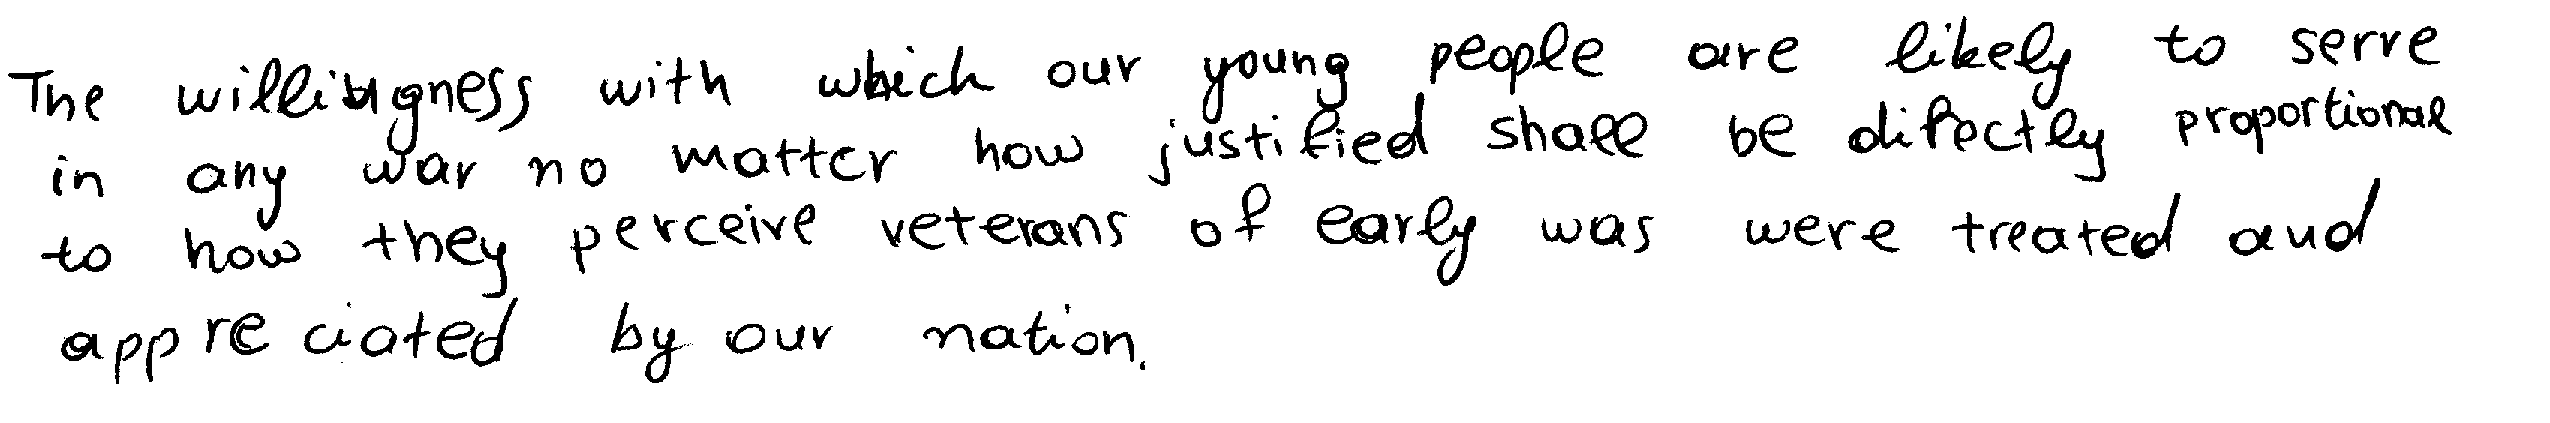 The willingness with which our young people are likely to serve
in any war no matter how justified shall be directly proportional
to how they perceive veterans of early was were treated and
appreciated by our nation.